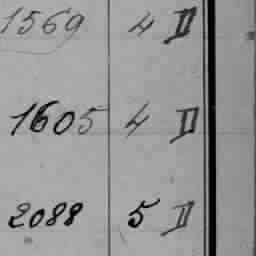 1569 4 II
1605 4 II
2088 5 II